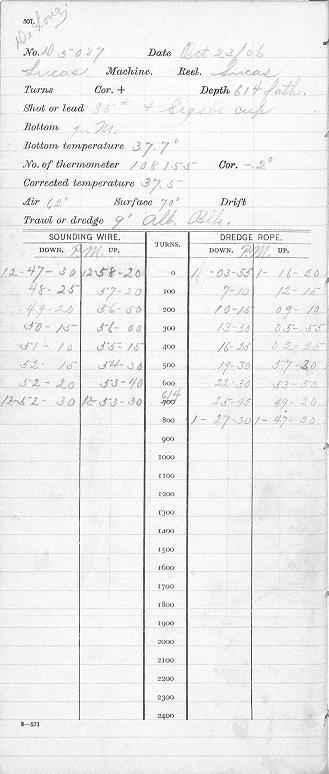 507.
De Long.
No. D5087 Date Oct 23/06
Lucas Machine. Reel. Lucas
Turns Cor. + Depth 614 fath.
Shot or lead 35# + Sigsbee cup
Bottom gn M.
Bottom temperature 37.7°
No. of thermometer 108155 Cor. -.2°
Corrected temperature 37.5
Air 62° Surface 70° Drift
Trawl or dredge 9' Alb. Blk.
SOUNDING WIRE. TURNS. DREDGE ROPE.
DOWN. P.M. UP. DOWN. P.M. UP.
12-47-30 12-58-20 0 1-03-55 1-16-20
48-25 57-30 100 7-10 12-15
49-20 56-50 200 10-15 09-10
50-15 56-00 300 13-30 05-55
51-10 55-15 400 16-25 02-25
52-15 54-30 500 19-30 57-30
52-20 53-40 600 22-30 53-50
614
12-52-30 12-53-30 700 25-45 49-20
800 1-27-30 1-47-30
900
1000
1100
1200
1300
1400
1500
1600
1700
1800
1900
2000
2100
2200
2300
2400
2—571